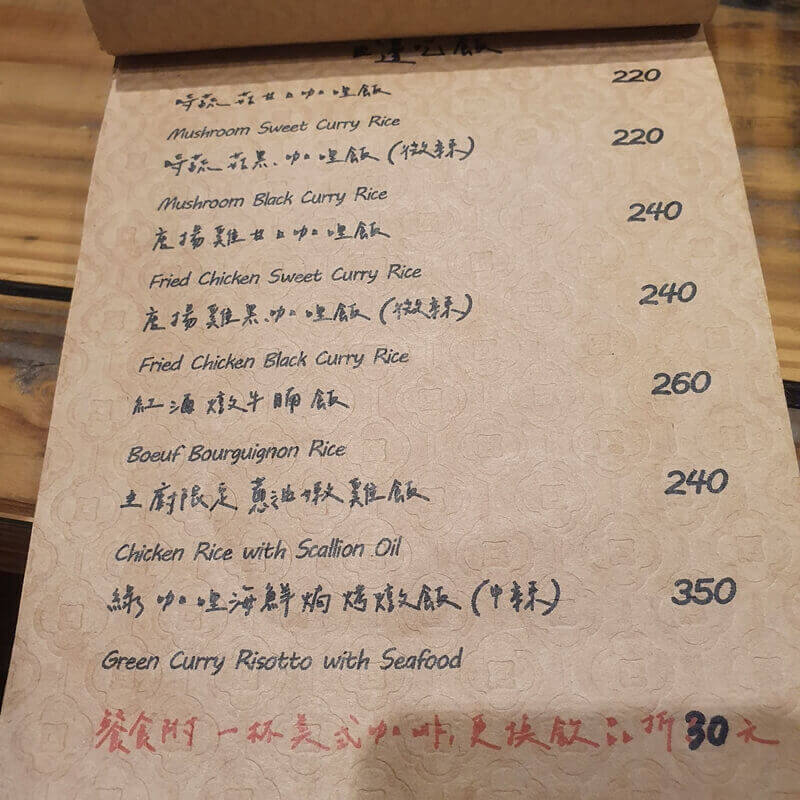 邊吃飯
時蔬菇甘口咖哩飯 220
Mushroom Sweet Curry Rice
時蔬菇黑咖哩飯(微辣) 220
Mushroom Black Curry Rice
唐揚雞甘口咖哩飯 240
Fried Chicken Sweet Curry Rice
唐揚雞黑咖哩飯(微辣) 240
Fried Chicken Black Curry Rice
紅酒燉牛腩飯 260
Boeuf Bourguignon Rice
主廚限定蔥油嫩雞飯 240
Chicken Rice with Scallion Oil
綠咖哩海鮮焗烤燉飯(中辣) 350
Green Curry Risotto with Seafood
餐食附一杯美式咖啡,更換飲品折30元